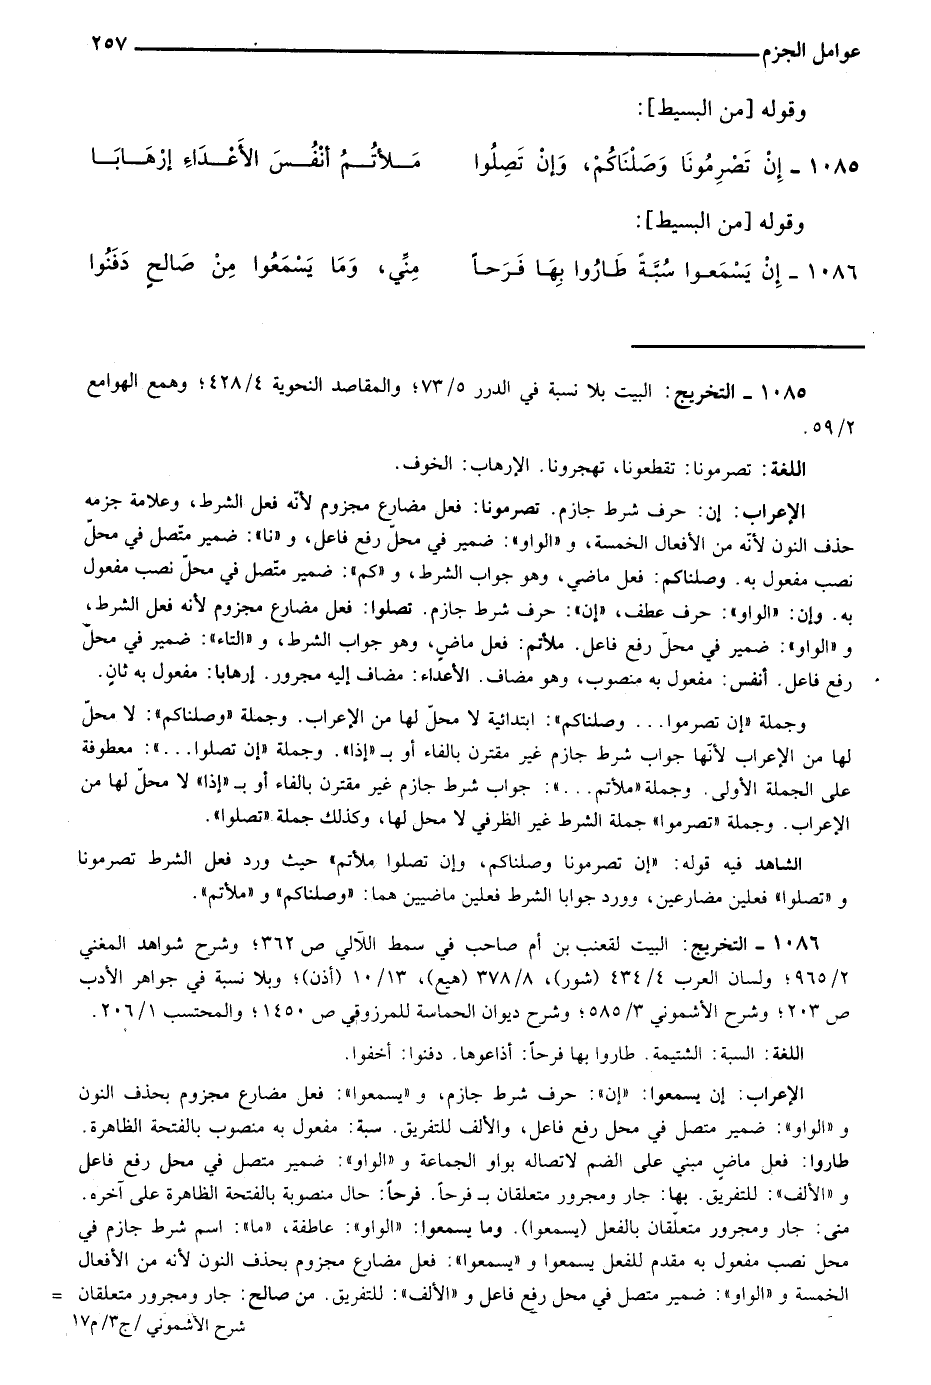 عوامل الجزم ٢٥٧
وقوله [من البسيط]:
١٠٨٥ ـ إِنْ تَصْرِمُونَا وَصَلْنَاكُمْ، وَإِنْ تَصِلُوا مَـلأتُـمُ أَنْفُـسَ الأَعْـدَاءِ إرْهَـابَـا
وقوله [من البسيط]:
١٠٨٦ ـ إِنْ يَسْمَعـوا سُبَّةً طَارُوا بِهَـا فَـرَحـاً مِنِّي، وَمَا يَسْمَعُوا مِنْ صَالحٍ دَفَنُوا
١٠٨٥ ـ التخريج: البيت بلا نسبة في الدرر ٧٣/٥؛ والمقاصد النحوية ٤٢٨/٤؛ وهمع الهوامع
٥٩/٢.
اللغة: تصرمونا: تقطعونا، تهجرونا. الإرهاب: الخوف.
الإعراب: إن: حرف شرط جازم. تصرمونا: فعل مضارع مجزوم لأنّه فعل الشرط، وعلامة جزمه
حذف النون لأنّه من الأفعال الخمسة، و «الواو»: ضمير في محلّ رفع فاعل، و «نا»: ضمير متّصل في محلّ
نصب مفعول به. وصلناكم: فعل ماضي، وهو جواب الشرط، و «كم»: ضمير متّصل في محلّ نصب مفعول
به. وإن: «الواو»: حرف عطف، «إن»: حرف شرط جازم. تصلوا: فعل مضارع مجزوم لأنه فعل الشرط،
و «الواو»: ضمير في محلّ رفع فاعل. ملأتم: فعل ماضٍ، وهو جواب الشرط، و «التاء»: ضمير في محلّ
رفع فاعل. أنفس: مفعول به منصوب، وهو مضاف. الأعداء: مضاف إليه مجرور. إرهابا: مفعول به ثانٍ.
وجملة «إن تصرموا... وصلناكم»: ابتدائية لا محلّ لها من الإعراب. وجملة «وصلناكم»: لا محلّ
لها من الإعراب لأنّها جواب شرط جازم غير مقترن بالفاء أو بـ «إذا». وجملة «إن تصلوا...»: معطوفة
على الجملة الأولى. وجملة «ملأتم...»: جواب شرط جازم غير مقترن بالفاء أو بـ «إذا» لا محلّ لها من
الإعراب. وجملة «تصرموا» جملة الشرط غير الظرفي لا محل لها، وكذلك جملة «تصلوا».
الشاهد فيه قوله: «إن تصرمونا وصلناكم، وإن تصلوا ملأتم» حيث ورد فعل الشرط تصرمونا
و «تصلوا» فعلين مضارعين، وورد جوابا الشرط فعلين ماضيين هما: «وصلناكم» و «ملأتم».
١٠٨٦ ـ التخريج: البيت لقعنب بن أم صاحب في سمط اللآلي ص ٣٦٢؛ وشرح شواهد المغني
٩٦٥/٢؛ ولسان العرب ٤٣٤/٤ (شور)، ٣٧٨/٨ (هيع)، ١٠/١٣ (أذن)؛ وبلا نسبة في جواهر الأدب
ص ٢٠٣؛ وشرح الأشموني ٥٨٥/٣؛ وشرح ديوان الحماسة للمرزوقي ص ١٤٥٠؛ والمحتسب ٢٠٦/١.
اللغة: السبة: الشتيمة. طاروا بها فرحاً: أذاعوها. دفنوا: أخفوا.
الإعراب: إن يسمعوا: «إن»: حرف شرط جازم، و «يسمعوا»: فعل مضارع مجزوم بحذف النون
و «الواو»: ضمير متصل في محل رفع فاعل، والألف للتفريق. سبة: مفعول به منصوب بالفتحة الظاهرة.
طاروا: فعل ماضٍ مبني على الضم لاتصاله بواو الجماعة و «الواو»: ضمير متصل في محل رفع فاعل
و «الألف»: للتفريق. بها: جار ومجرور متعلقان بـ فرحاً. فرحاً: حال منصوبة بالفتحة الظاهرة على آخره.
مني: جار ومجرور متعلّقان بالفعل (يسمعوا). وما يسمعوا: «الواو»: عاطفة، «ما»: اسم شرط جازم في
محل نصب مفعول به مقدم للفعل يسمعوا و «يسمعوا»: فعل مضارع مجزوم بحذف النون لأنه من الأفعال
الخمسة و «الواو»: ضمير متصل في محل رفع فاعل و «الألف»: للتفريق. من صالح: جار ومجرور متعلقان =
شرح الأشموني /ج٣/ م١٧